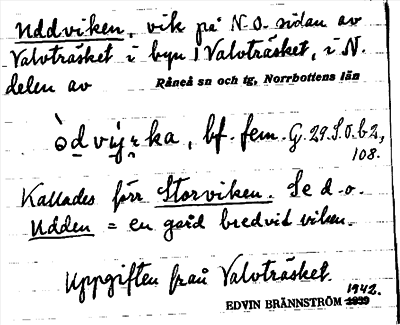 Uddviken, vik på N.O. sidan av
Valvträsket i byn Valvträsket, i N.
delen av Råneå sn och tg, Norrbottens län
bf. fem. G. 29. S. 0. b2,
108.
Kallades förr Storviken. Se d.o.
Udden = en gård bredvid viken.
Uppgiften från Valvträsket.
1942.
EDVIN BRÄNNSTRÖM 1939